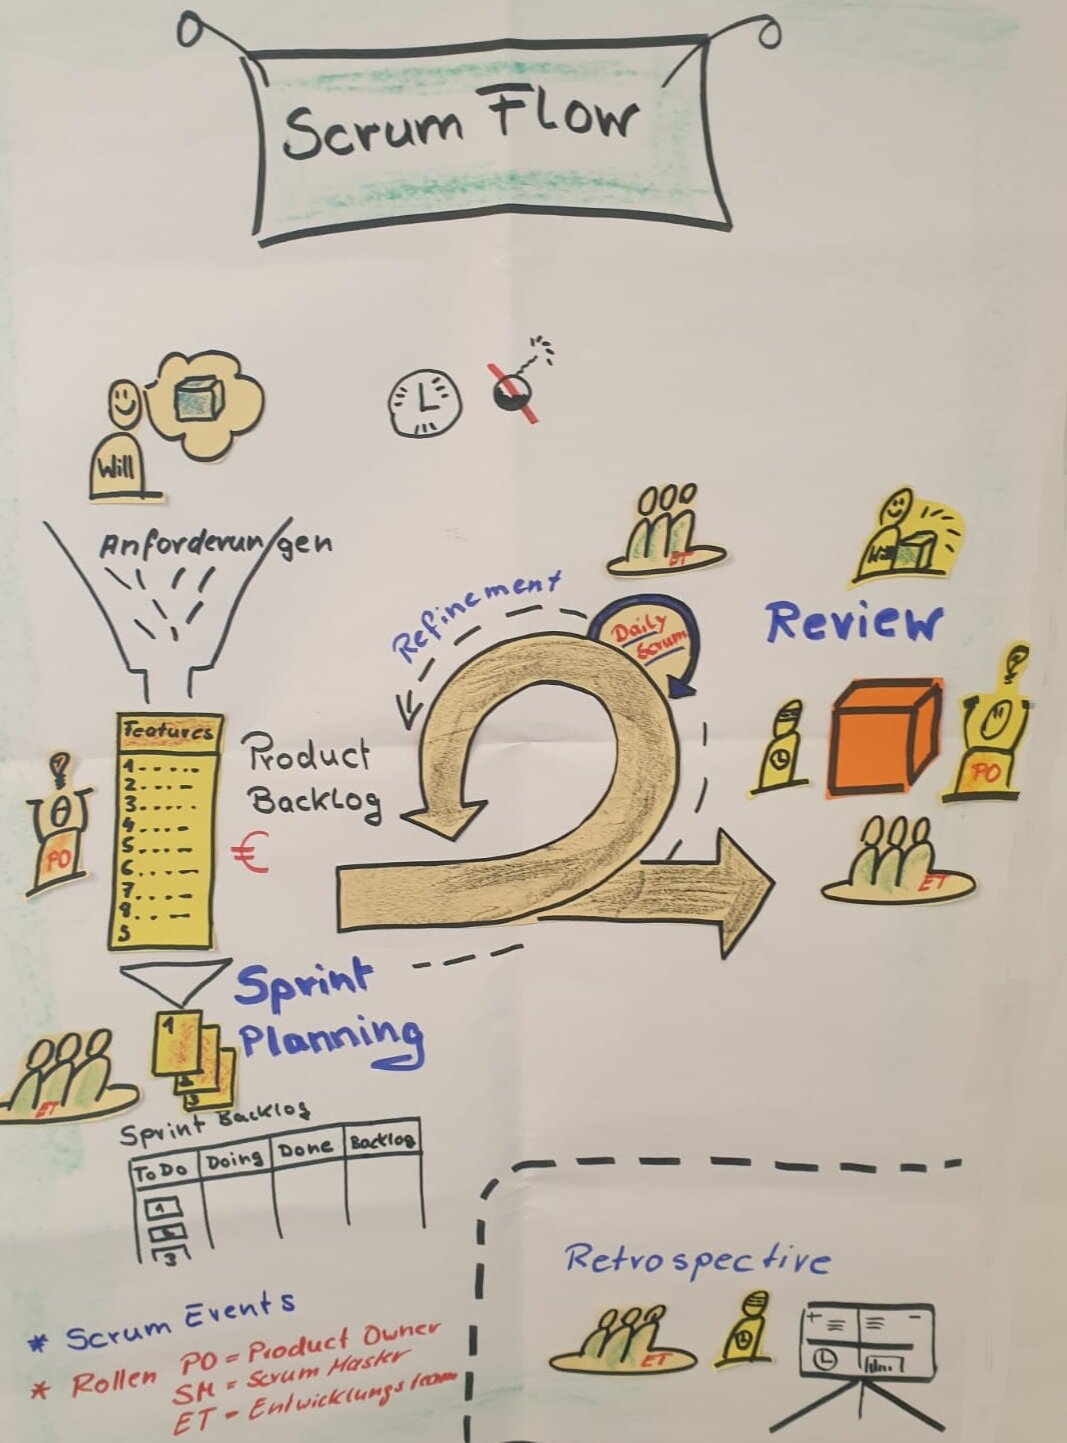 Scrum Flow
Will
Anforderungen
ET
Refinement
Daily
Scrum
Will
Review
Features
1.....
2...
3....
4...
5....
6...
7...
8...
9
Product
Backlog
€
PO
PO
ET
Sprint
Planning
1
2
3
ET
Sprint Backlog
To Do Doing Done Backlog
1
2
3
Retrospective
ET
+ -
* Scrum Events
* Rollen PO = Product Owner
SM = Scrum Master
ET - Entwicklungsteam